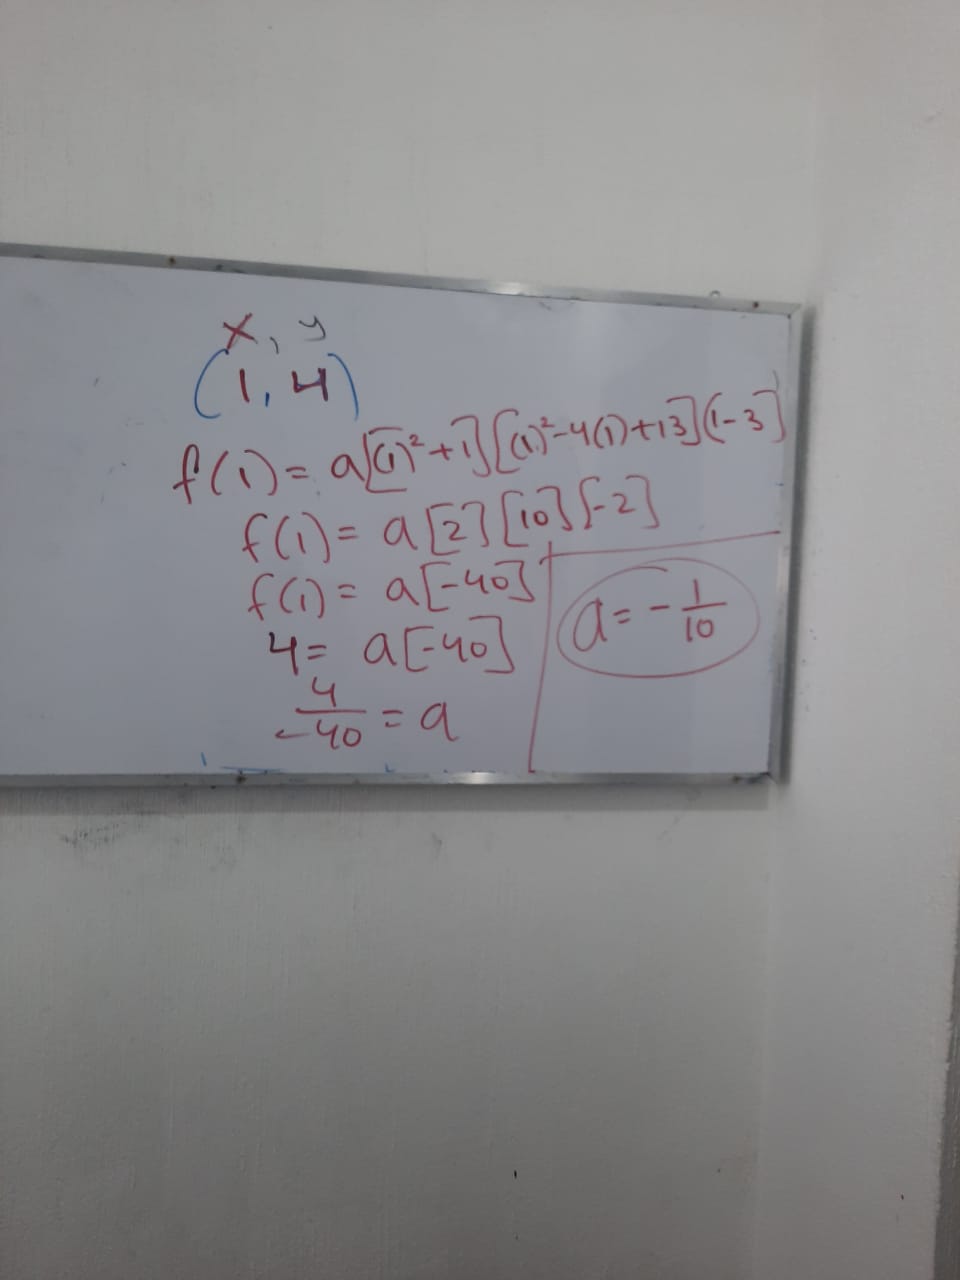 x, y
(1, 4)
f(1) = a[(1)²+1][(1)²-4(1)+13](1-3]
f(1) = a[2][10][-2]
f(1) = a[-40]
4 = a[-40]
4/-40 = a
a = -1/10